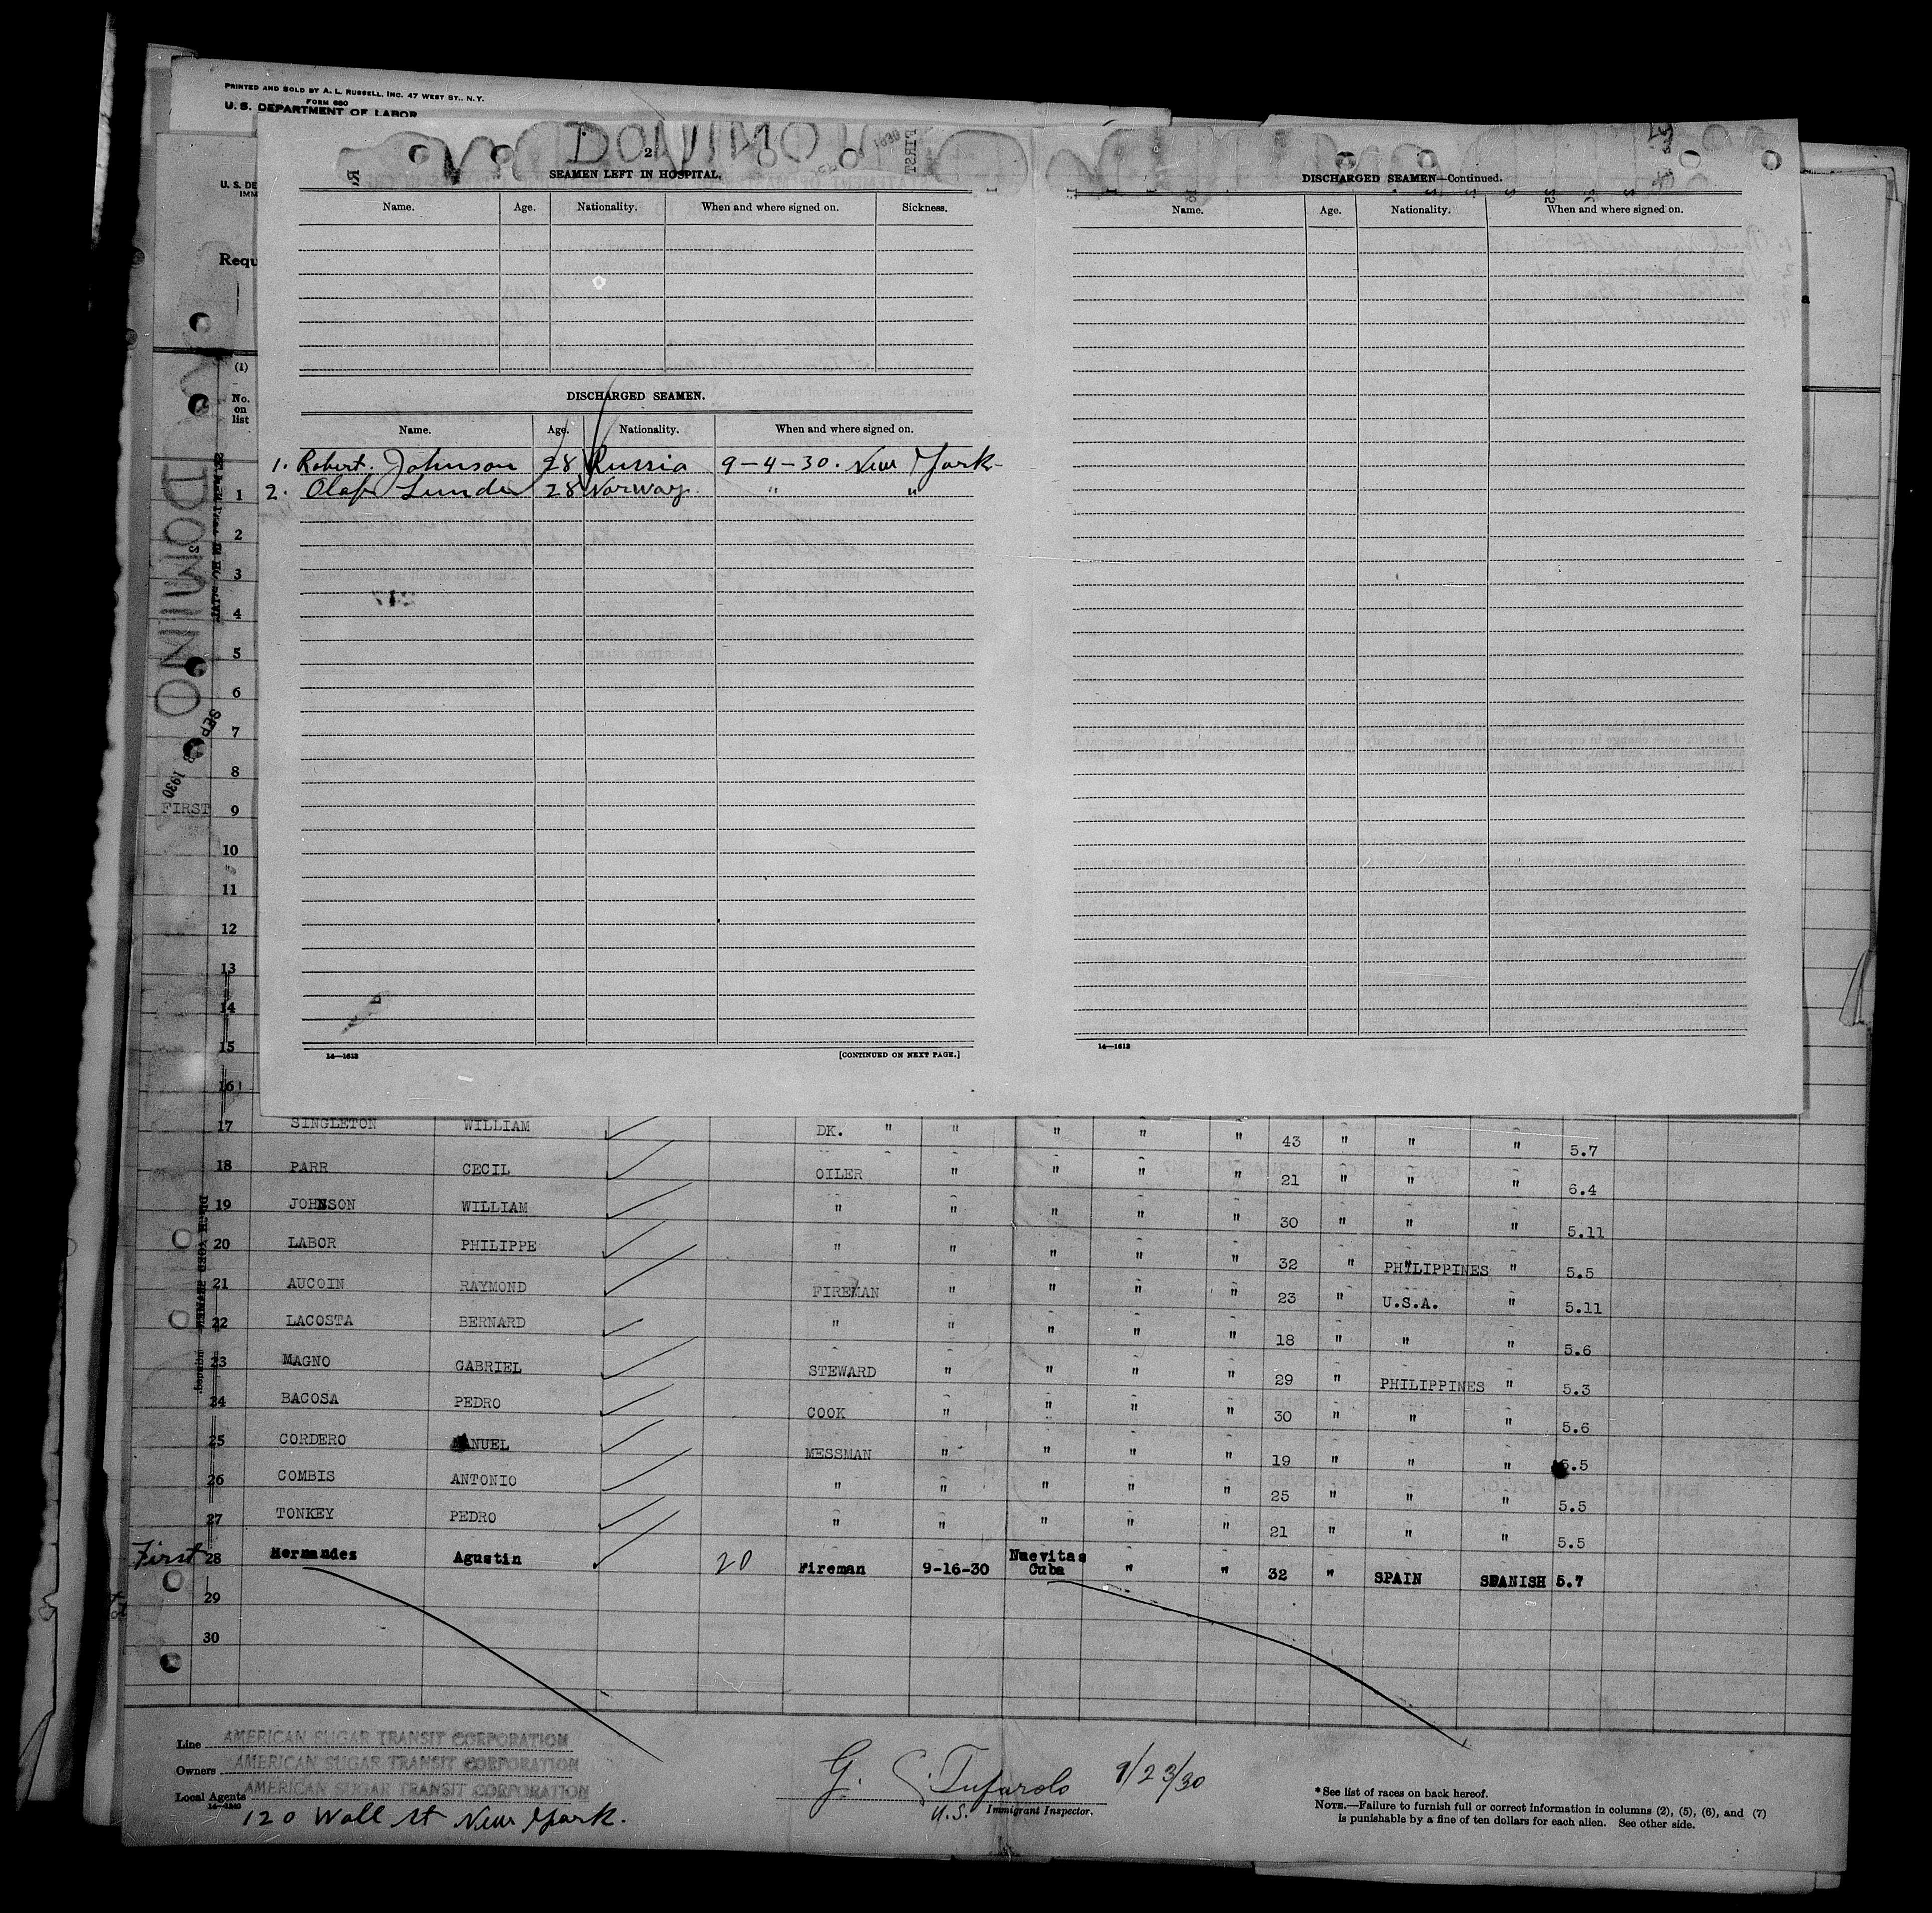 PRINTED AND SOLD BY A. L. RUSSELL, INC. 47 WEST ST., N.Y.
FORM 680
U. S. DEPARTMENT OF LABOR
U. S. DE
IMM
Requ
DOMINO
2
SEAMEN LEFT IN HOSPITAL.
Name. Age. Nationality. When and where signed on. Sickness.
DISCHARGED SEAMEN.
Name. Age. Nationality. When and where signed on.
1. Robert. Johnson 28 Russia 9-4-30. New York-
2. Olaf Lunde 28 Norway. " "
14—1613
[CONTINUED ON NEXT PAGE.]
DISCHARGED SEAMEN—Continued.
Name. Age. Nationality. When and where signed on.
14—1613
(1)
No.
on
list
DOMINO
SEP 1930
FIRST
1
2
3
4
5
6
7
8
9
10
11
12
13
14
15
16
17 SINGLETON WILLIAM DK. " " " " " 43 " " " 5.7
18 PARR CECIL OILER " " " " 21 " " " 6.4
19 JOHNSON WILLIAM " " " " " 30 " " " 5.11
20 LABOR PHILIPPE " " " " " 32 " PHILIPPINES " 5.5
21 AUCOIN RAYMOND FIREMAN " " " " 23 " U.S.A. " 5.11
22 LACOSTA BERNARD " " " " " 18 " " " 5.6
23 MAGNO GABRIEL STEWARD " " " " 29 " PHILIPPINES " 5.3
24 BACOSA PEDRO COOK " " " " 30 " " " 5.6
25 CORDERO MANUEL MESSMAN " " " " 19 " " " 5.5
26 COMBIS ANTONIO " " " " " 25 " " " 5.5
27 TONKEY PEDRO " " " " " 21 " " " 5.5
First 28 Hernandez Agustin 20 Fireman 9-16-30 Nuevitas Cuba " " 32 " SPAIN SPANISH 5.7
29
30
Line AMERICAN SUGAR TRANSIT CORPORATION
Owners AMERICAN SUGAR TRANSIT CORPORATION
Local Agents AMERICAN SUGAR TRANSIT CORPORATION
14—4240
120 Wall St New York.
G. 9/23/30
U.S. Immigrant Inspector.
* See list of races on back hereof.
NOTE.—Failure to furnish full or correct information in columns (2), (5), (6), and (7)
is punishable by a fine of ten dollars for each alien. See other side.